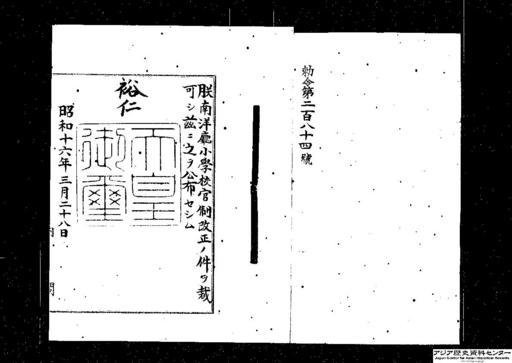 勅令第二百八十四號
朕南洋廳小學校官制改正ノ件ヲ裁
可シ茲ニ之ヲ公布セシム
裕仁
天皇
御璽
昭和十六年三月二十八日
アジア歴史資料センター
Japan Center for Asian Historical Records